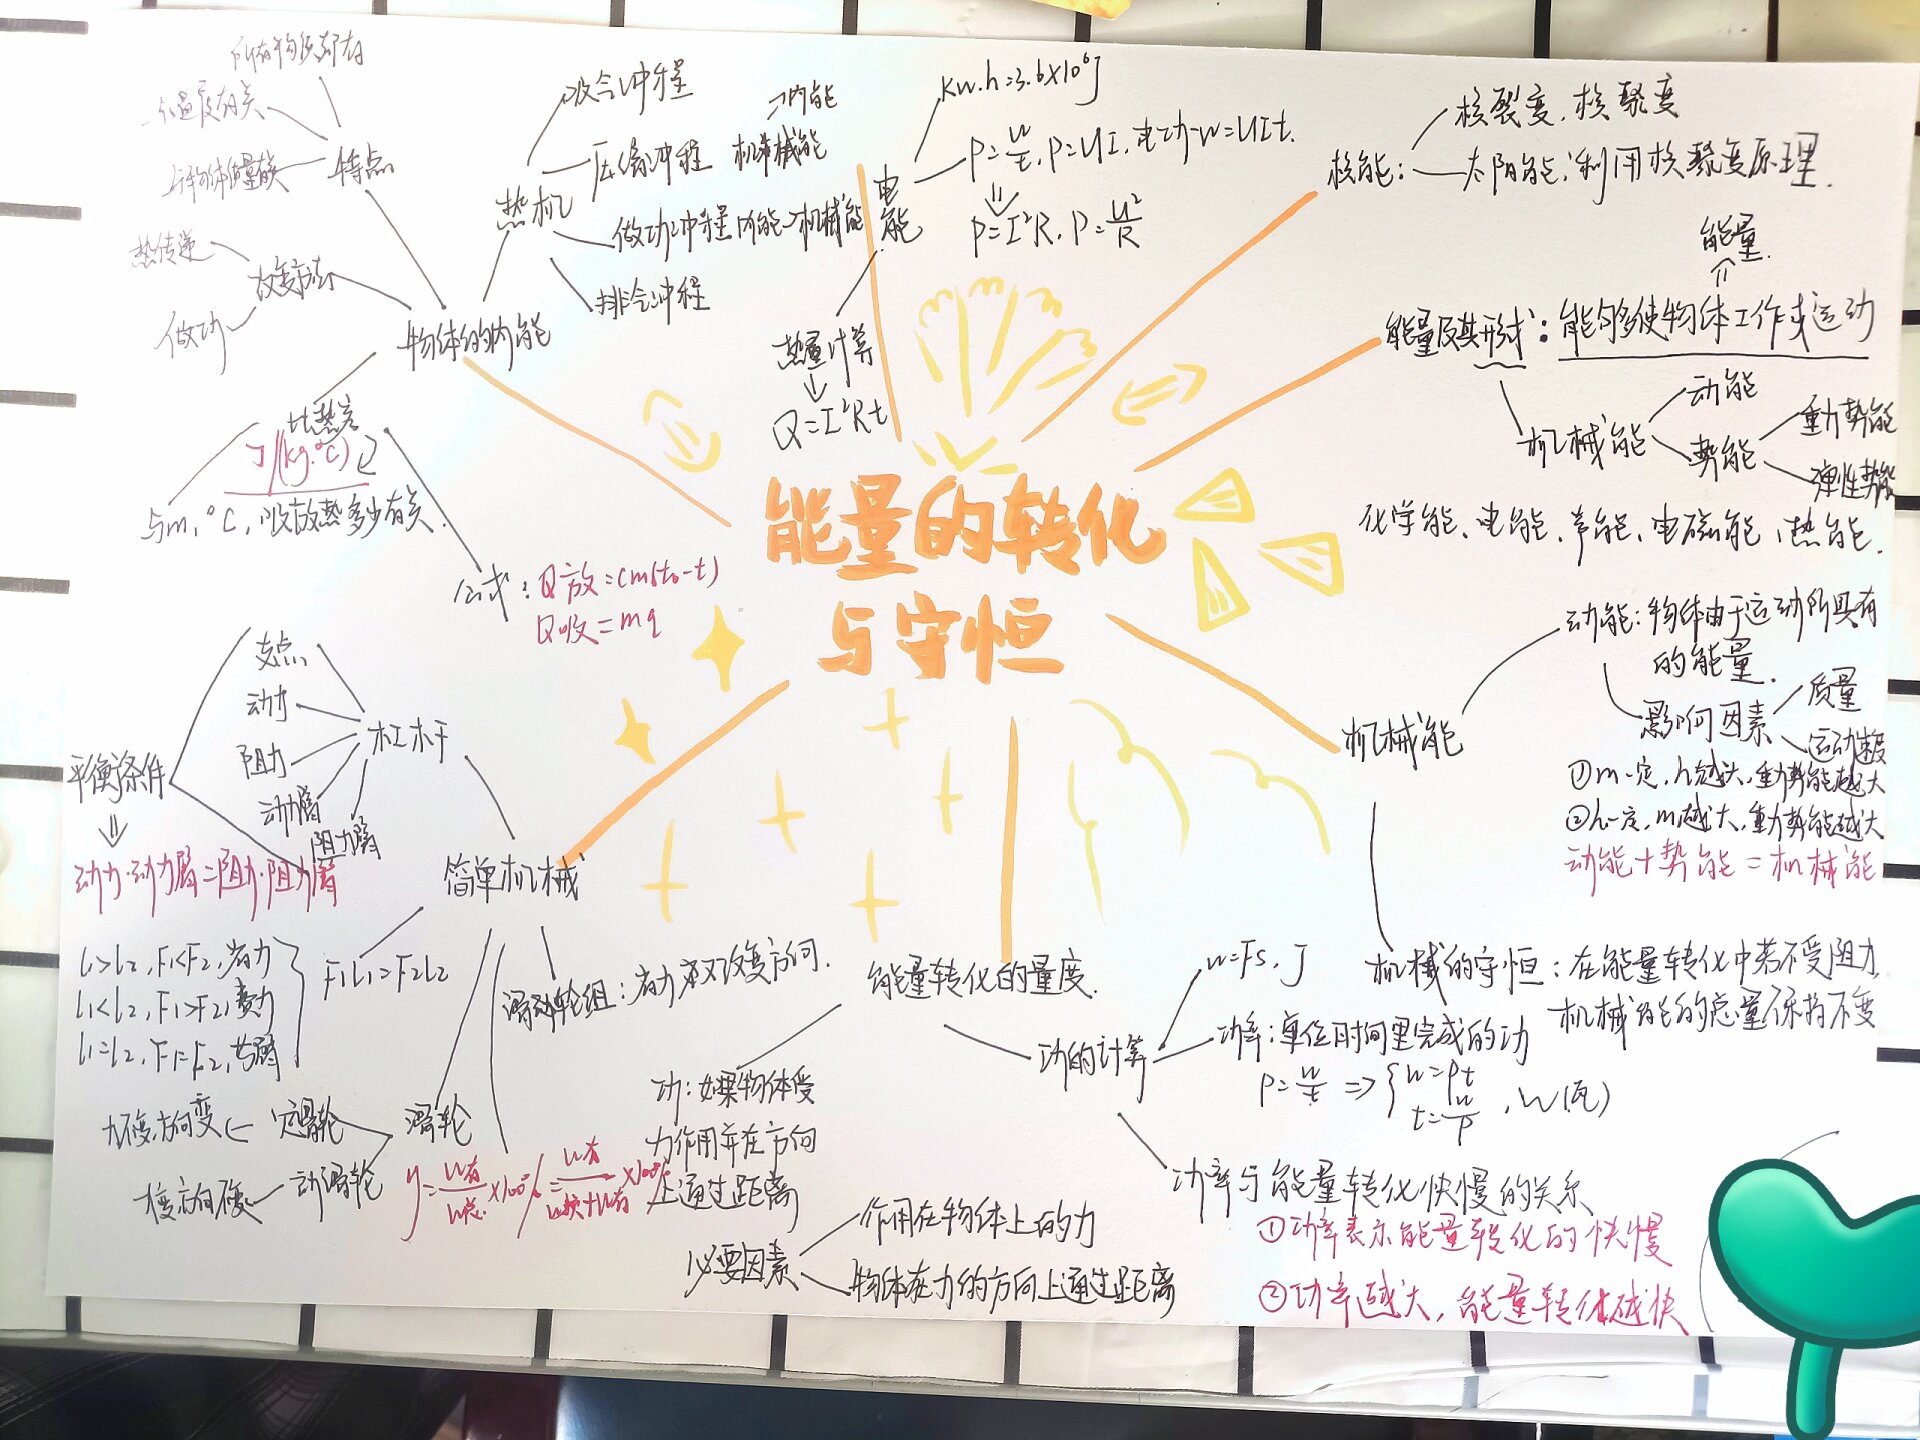 能量的转化
与守恒
物体的内能
特点
所有物质都有
与温度有关
改变方法
热传递
做功
比热容
J/(kg·℃)
与m,℃,吸放热多少有关.
公式:Q放=cm(t₀-t)
Q吸=mq
热机
吸气冲程
压缩冲程 机械能
→内能
做功冲程 内能→机械能
排气冲程
电能
kw.h=3.6×10⁶J
P=W/t, P=UI, 电功W=UIt.
⇓
P=I²R, P=U²/R
热量计算
⇓
Q=I²Rt
核能:
核裂变, 核聚变
太阳能:利用核聚变原理.
能量.
⇑
能量及其形式:能够使物体工作或运动
机械能
动能
势能
重力势能
弹性势能
化学能、电能、声能、电磁能、热能.
机械能
动能:物体由于运动所具有
的能量.
影响因素
质量
运动速度
①m一定,h越大,重力势能越大
②h一定,m越大,重力势能越大
动能+势能=机械能
机械的守恒:在能量转化中若不受阻力,
机械能的总量保持不变
能量转化的量度.
功:如果物体受
力作用并在方向
上通过距离
必要因素
作用在物体上的力
物体在力的方向上通过距离
功的计算
W=Fs, J
功率:单位时间里完成的功
P=W/t ⇒ {W=Pt
t=W/P , W(瓦)
功率与能量转化快慢的关系
①功率表示能量转化的快慢
②功率越大,能量转化越快
简单机械
杠杆
支点
动力
阻力
动力臂
阻力臂
平衡条件
⇓
动力·动力臂=阻力·阻力臂
F₁L₁=F₂L₂
L₁>L₂,F₁<F₂,省力
L₁<L₂,F₁>F₂,费力
L₁=L₂,F₁=F₂,等臂
滑轮
定滑轮
力不变,方向变←
动滑轮
滑动轮组:省力又改变方向.
η=W有/W总×100%=W有/W额+W有×100%